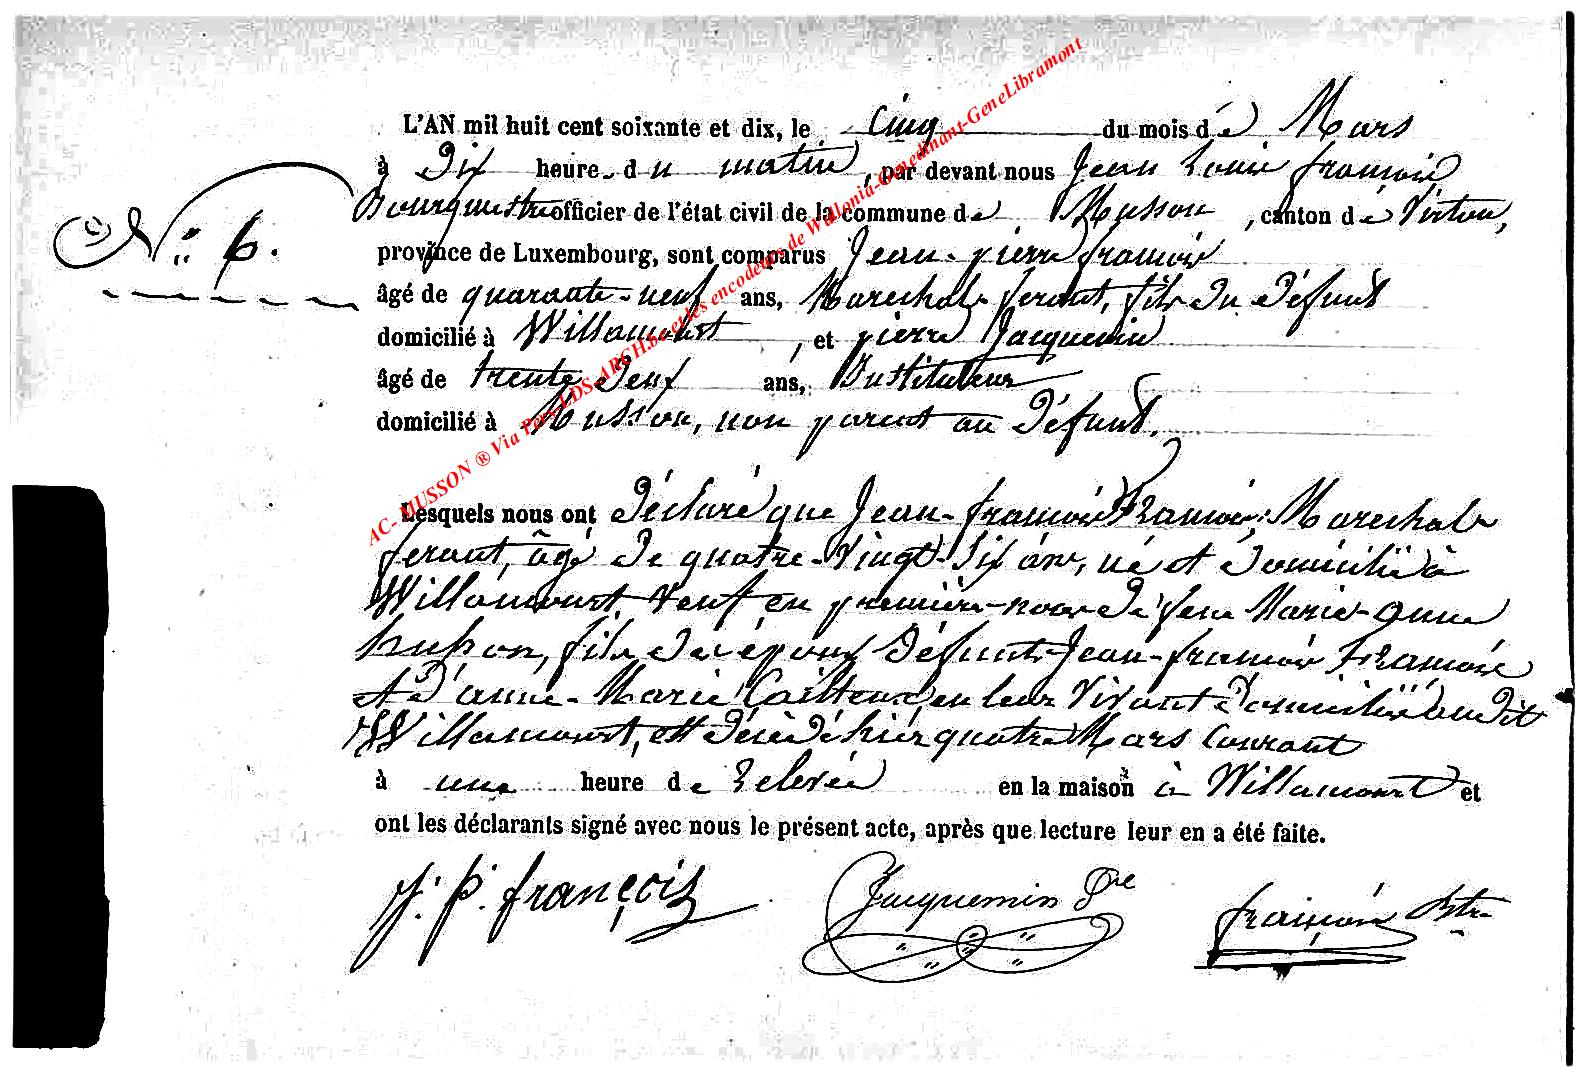 L'AN mil huit cent soixante et dix, le cinq du mois de Mars
à Dix heure du matin, par devant nous Jean Louis françois
N° 6.
Bourgmestre officier de l'état civil de la commune de Musson, canton de Virton,
province de Luxembourg, sont comparus Jean-pierre françois
âgé de quarante-neuf ans, Marechal-ferant, fils du Défunt
domicilié à Willancourt, et pierre Jacquemin
âgé de trente Deux ans, Instituteur
domicilié à Musson, non parent au Défunt.
Lesquels nous ont Déclaré que Jean-françois françois, Marechal-
ferant, âgé de quatre-vingt-six ans, né et Domicilié à
Willancourt, veuf en première-noces de feue Marie-anne
husson, fils des époux Défunts Jean-françois françois
et d'anne-Marie Cailteux, en leur vivant Domiciliés audit
Willancourt, est Décédé hier quatre Mars Courant
à une heure de relevée en la maison à Willancourt et
ont les déclarants signé avec nous le présent acte, après que lecture leur en a été faite.
J. P. françois Jacquemin Pre françois Bstre
AC- MUSSON ® Via Pers LDS-ARCH.be et les encodeurs de Wallonia-Genedinant-GeneLibramont